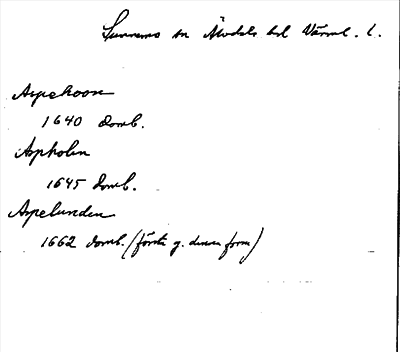 Sunnemo sn Älvdals hd Värml. l.
Aspekoon
1640 domb.
Aspholm
1645 domb.
Aspelunden
1662 domb. (första g. denna form)